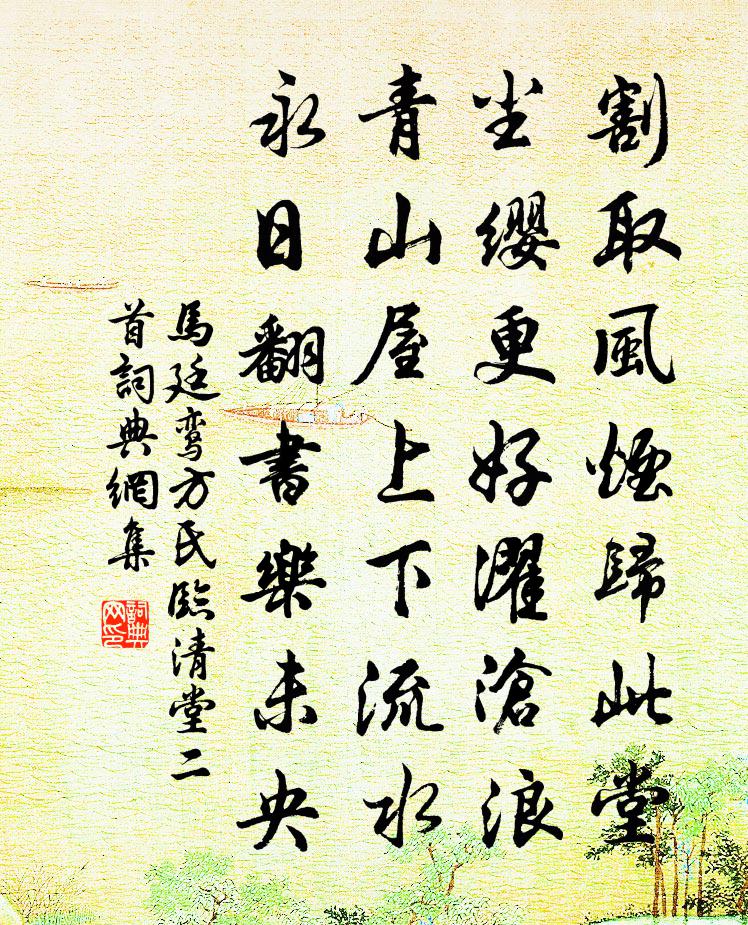 割取風煙歸此堂
尘纓更好濯滄浪
青山屋上下流水
永日翻書樂未央
馬廷鸾方氏臨清堂二
首詞典網集
詞典网印